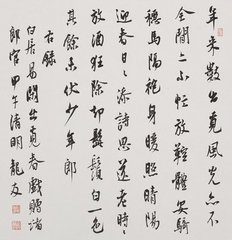 年来数出觅风光亦不
全闲亦不忙放鞚体安骑
稳马隔袍身暖照晴阳
迎春日日添诗思送老时时
放酒狂除却髭须白一色
其馀未伏少年郎
右录
白居易闲出觅春戏赠诸
郎官甲午清明龙友